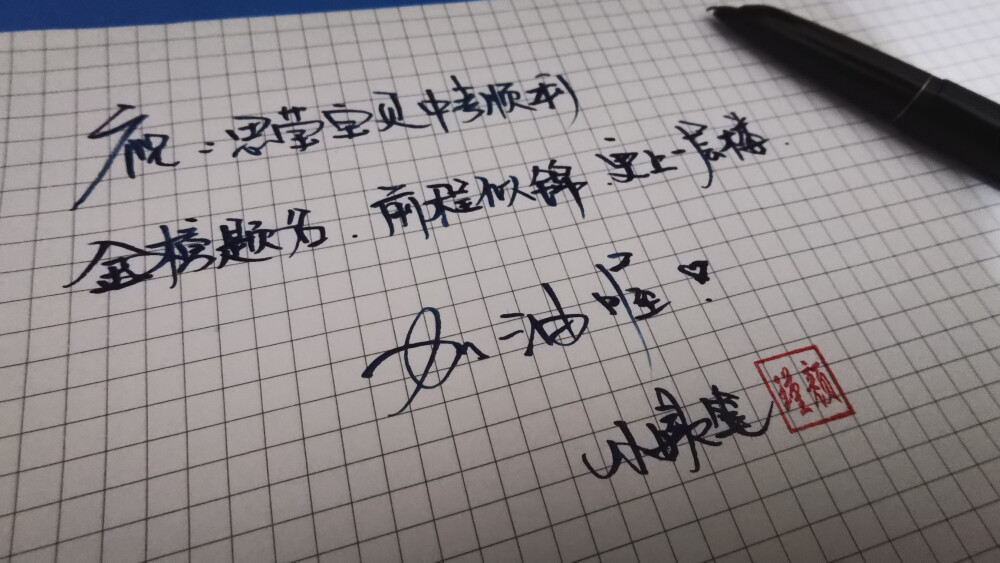 祝:思莹宝贝中考顺利
金榜题名.前程似锦.更上一层楼.
加油喔♥.
小